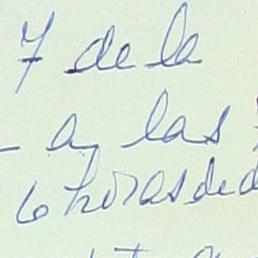 7 de la
- a las
6 horas de d